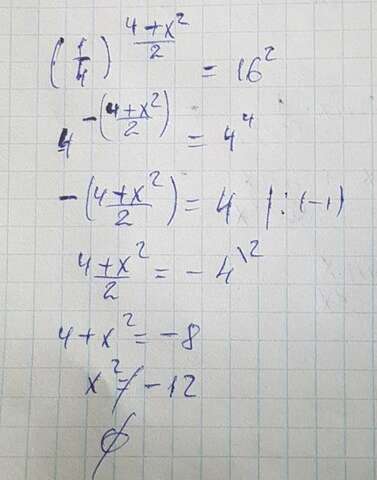 (1/4)^((4+x²)/2) = 16²
4^(-((4+x²)/2)) = 4⁴
-((4+x²)/2) = 4 | : (-1)
(4+x²)/2 = -4 \²
4+x² = -8
x² ≠ -12
∅